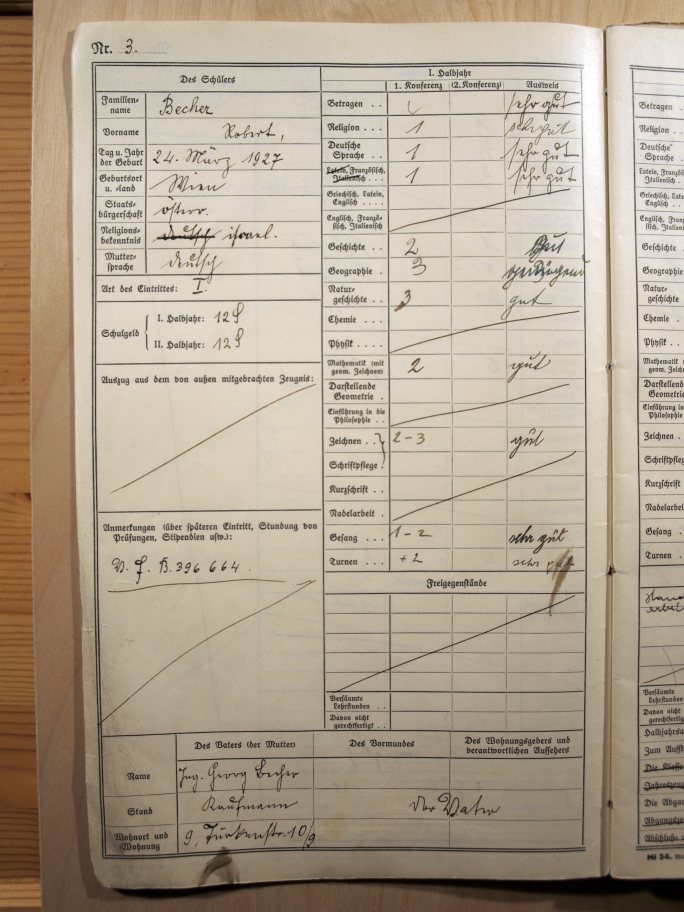 Nr. 3.
Des Schülers
Familien-
name
Becher
Vorname
Robert,
Tag u. Jahr
der Geburt
24. März 1927
Geburtsort
u. -land
Wien
Staats-
bürgerschaft
österr.
Religions-
bekenntnis
deutsch israel.
Mutter-
sprache
deutsch
Art des Eintrittes: I.
Schulgeld
I. Halbjahr: 12 S
II. Halbjahr: 12 S
Auszug aus dem von außen mitgebrachten Zeugnis:
Anmerkungen (über späteren Eintritt, Stundung von
Prüfungen, Stipendien usw.):
B. 396 664.
I. Halbjahr
1. Konferenz (2. Konferenz) Ausweis
Betragen . . sehr gut
Religion . . 1 sehr gut
Deutsche
Sprache . . 1 sehr gut
Latein, Französisch,
Italienisch . . . 1 sehr gut
Griechisch, Latein,
Englisch . . . .
Englisch, Franzö-
sisch, Italienisch
Geschichte . . 2 Gut
Geographie . 3 genügend
Natur-
geschichte . . 3 gut
Chemie . . . .
Physik . . . .
Mathematik (mit
geom. Zeichnen) 2 gut
Darstellende
Geometrie .
Einführung in die
Philosophie . .
Zeichnen . . 2-3 gut
Schriftpflege .
Kurzschrift . .
Nadelarbeit .
Gesang . . . 1-2 sehr gut
Turnen . . . +2 sehr gut
Freigegenstände
Versäumte
Lehrstunden . .
Davon nicht
gerechtfertigt . .
Des Vaters (der Mutter)
Des Vormundes
Des Wohnungsgebers und
verantwortlichen Aufsehers
Name
Ing. Georg Becher
Stand
Kaufmann
Der Vater
Wohnort und
Wohnung
9, Türkenstr. 10/9
Betragen .
Religion . .
Deutsche
Sprache . .
Latein, Franzö-
sisch, Italienisch
Griechisch, Latein,
Englisch . . .
Englisch, Franzö-
Geschichte
Geographie
Natur-
geschichte .
Chemie . .
Physik . .
Mathematik
geom. Zeichnen
Darstellende
Geometrie
Einführung in die
Philosophie .
Zeichnen .
Schriftpflege
Kurzschrift
Nadelarbeit
Gesang . .
Turnen . .
Versäumte
Lehrstunden
Davon nicht
gerechtfertigt
Zum
Die Klasse
MI 54.